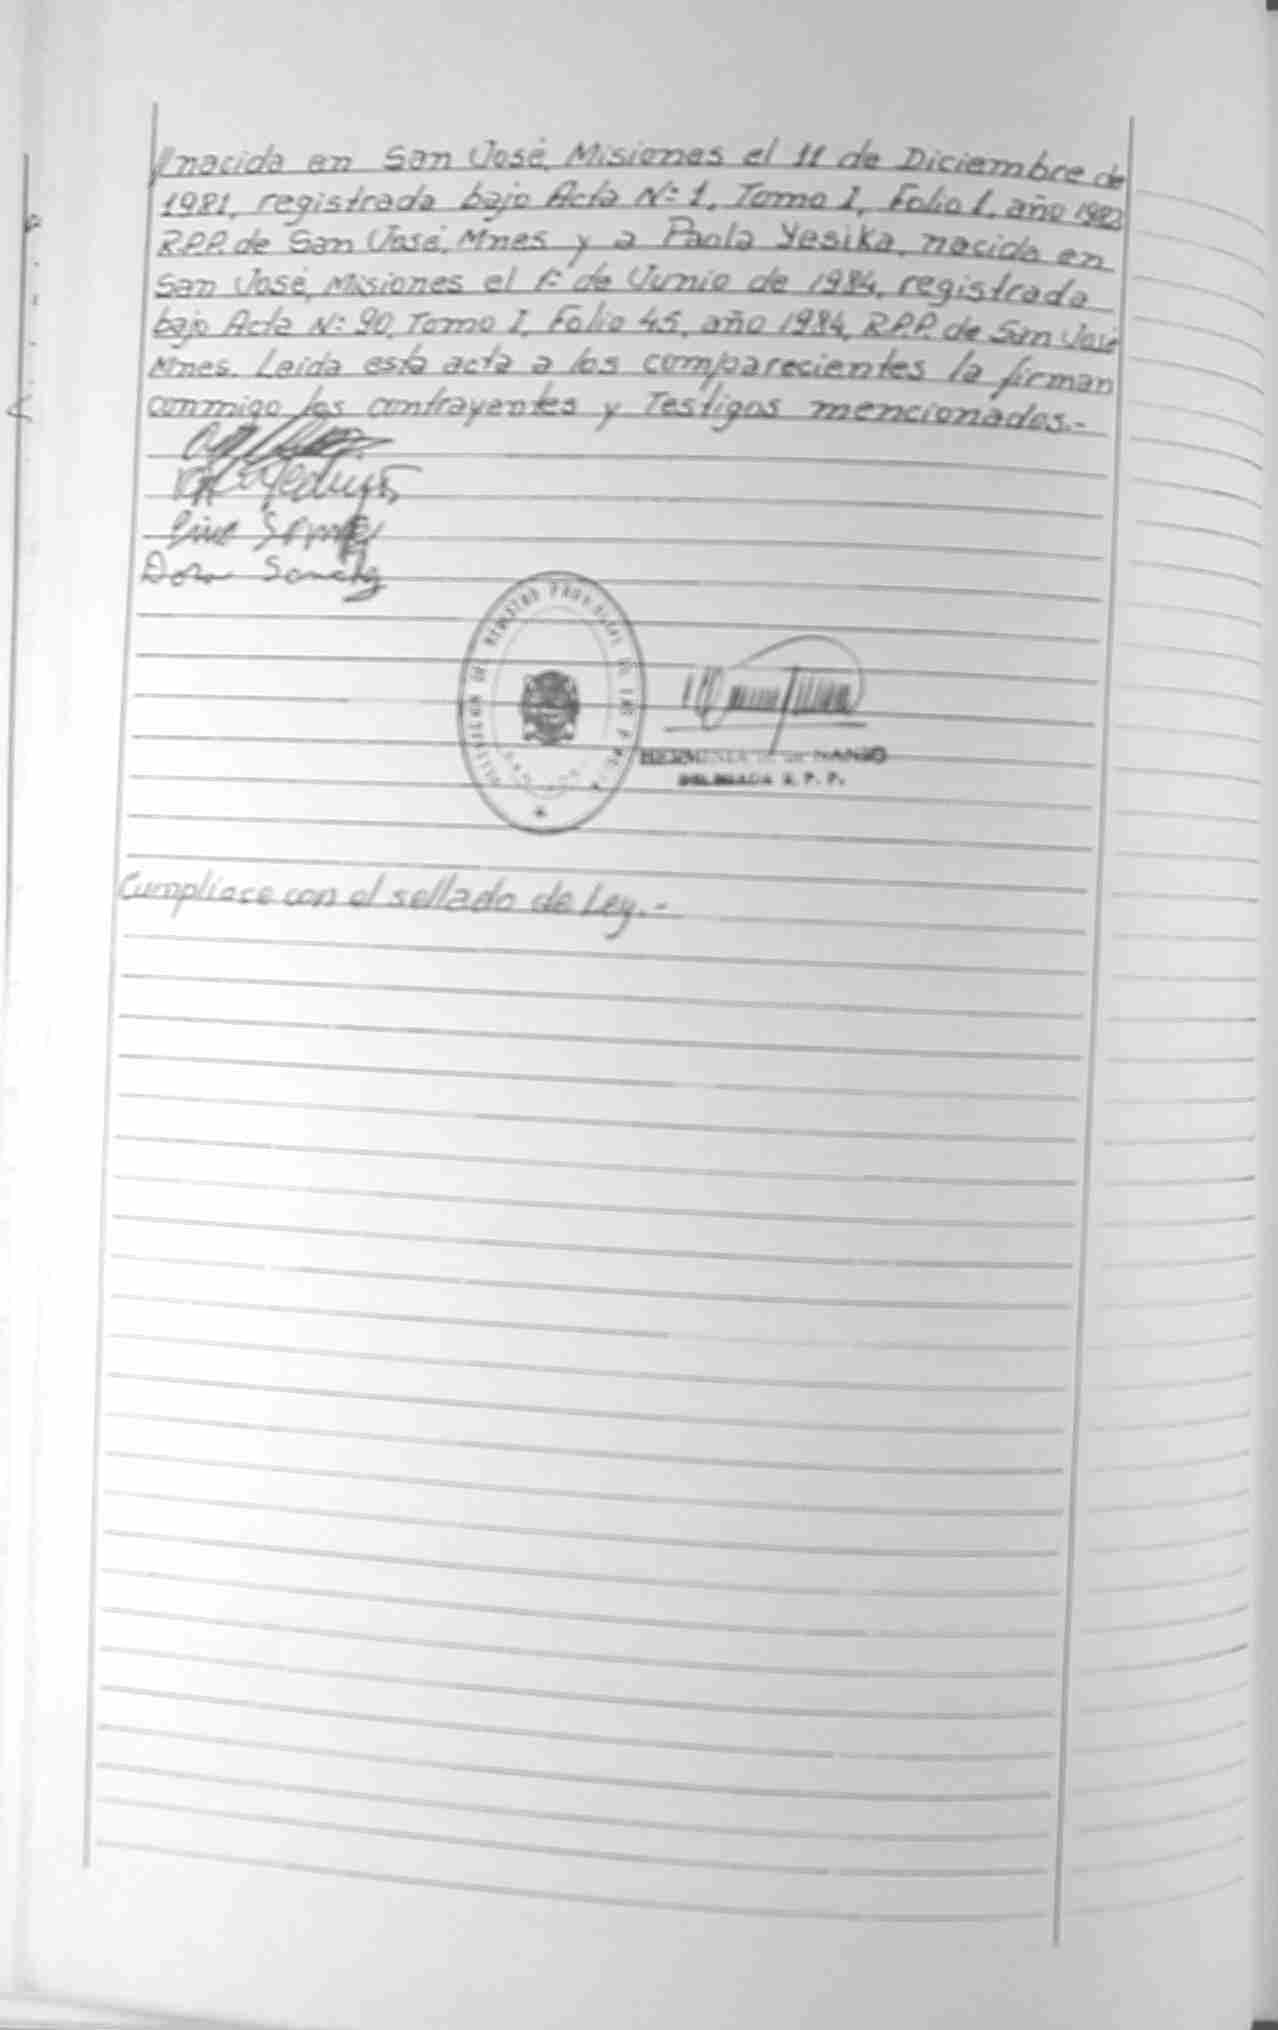 //nacida en San José, Misiones el 11 de Diciembre de
1981, registrada bajo Acta Nº 1, Tomo I, Folio 1, año 1982
R.P.P. de San José, Mnes y a Paola Yesika, nacida en
San José, Misiones el 1º de Junio de 1984, registrada
bajo Acta Nº 90, Tomo I, Folio 45, año 1984, R.P.P. de San José
Mnes. Leída esta acta a los comparecientes la firman
conmigo los contrayentes y Testigos mencionados.-
Dora Sanchez
DELEGACION DEL REGISTRO PROVINCIAL DE LAS
HERMINIA
DELEGADA R. P. P.
Cumpliose con el sellado de Ley.-